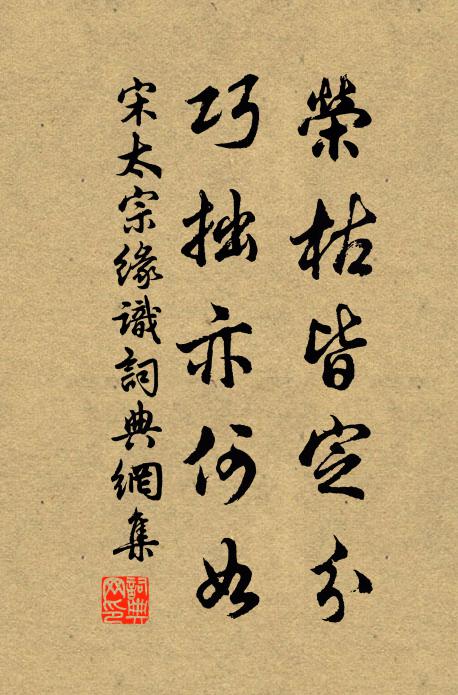 榮枯皆定分
巧拙亦何如
宋太宗緣識詞典網集
詞典網印